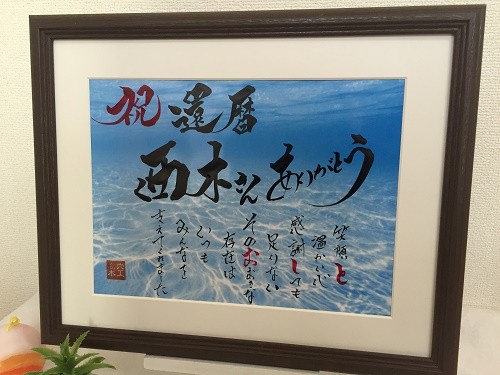 祝 還暦
西木さん ありがとう
笑顔と
温かい心
感謝しても
足りない
そのおおきな
存在は
いつも
みんなを
支えてくれました